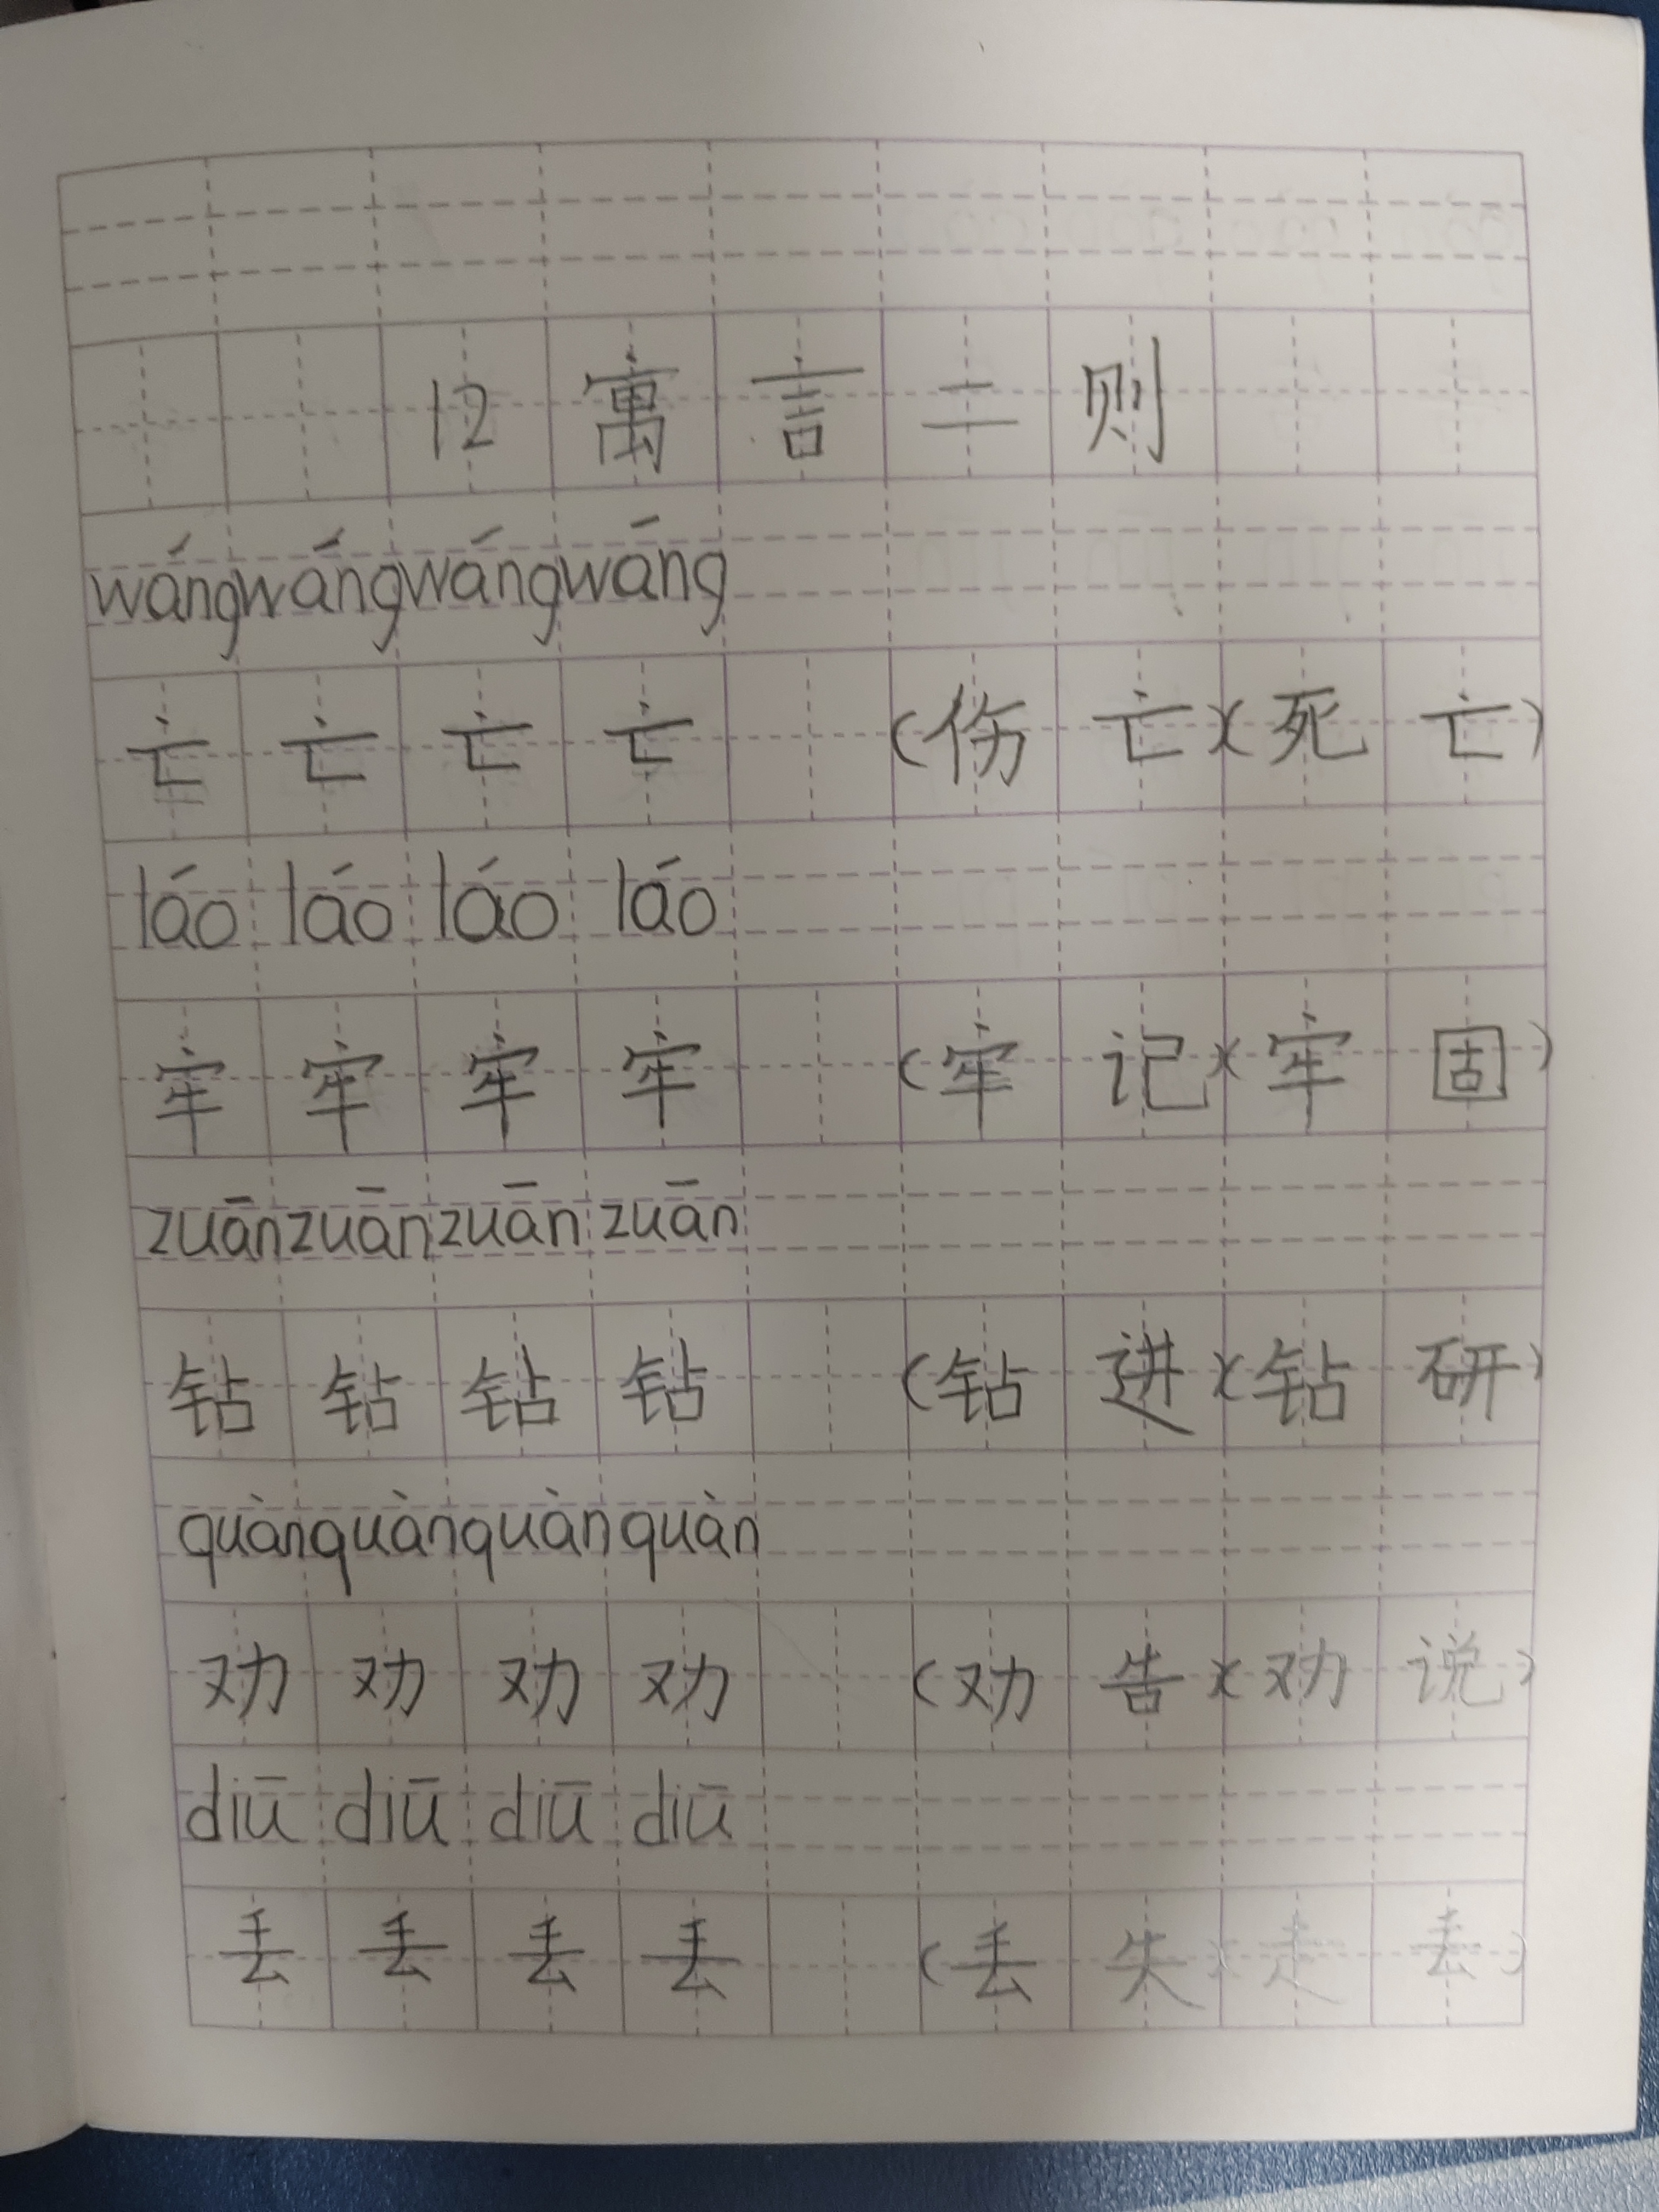 12 寓言二则
wángwángwángwáng
亡 亡 亡 亡 (伤亡)(死亡)
láo láo láo láo
牢 牢 牢 牢 (牢记)(牢固)
zuānzuānzuān zuān
钻 钻 钻 钻 (钻进)(钻研)
quànquànquànquàn
劝 劝 劝 劝 (劝告)(劝说)
diū diū diū diū
丢 丢 丢 丢 (丢失)(走丢)